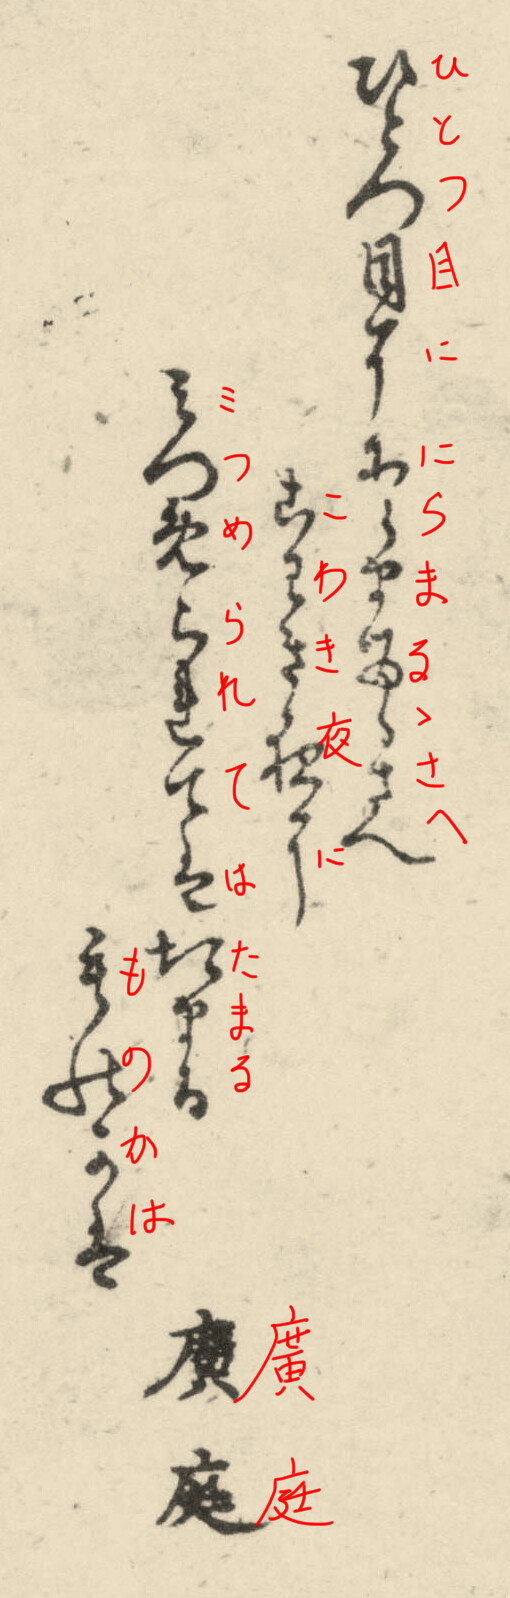 ひとつ目ににらまるゝさへ
こわき夜に
ミつめられては
たまる
ものかは
廣庭